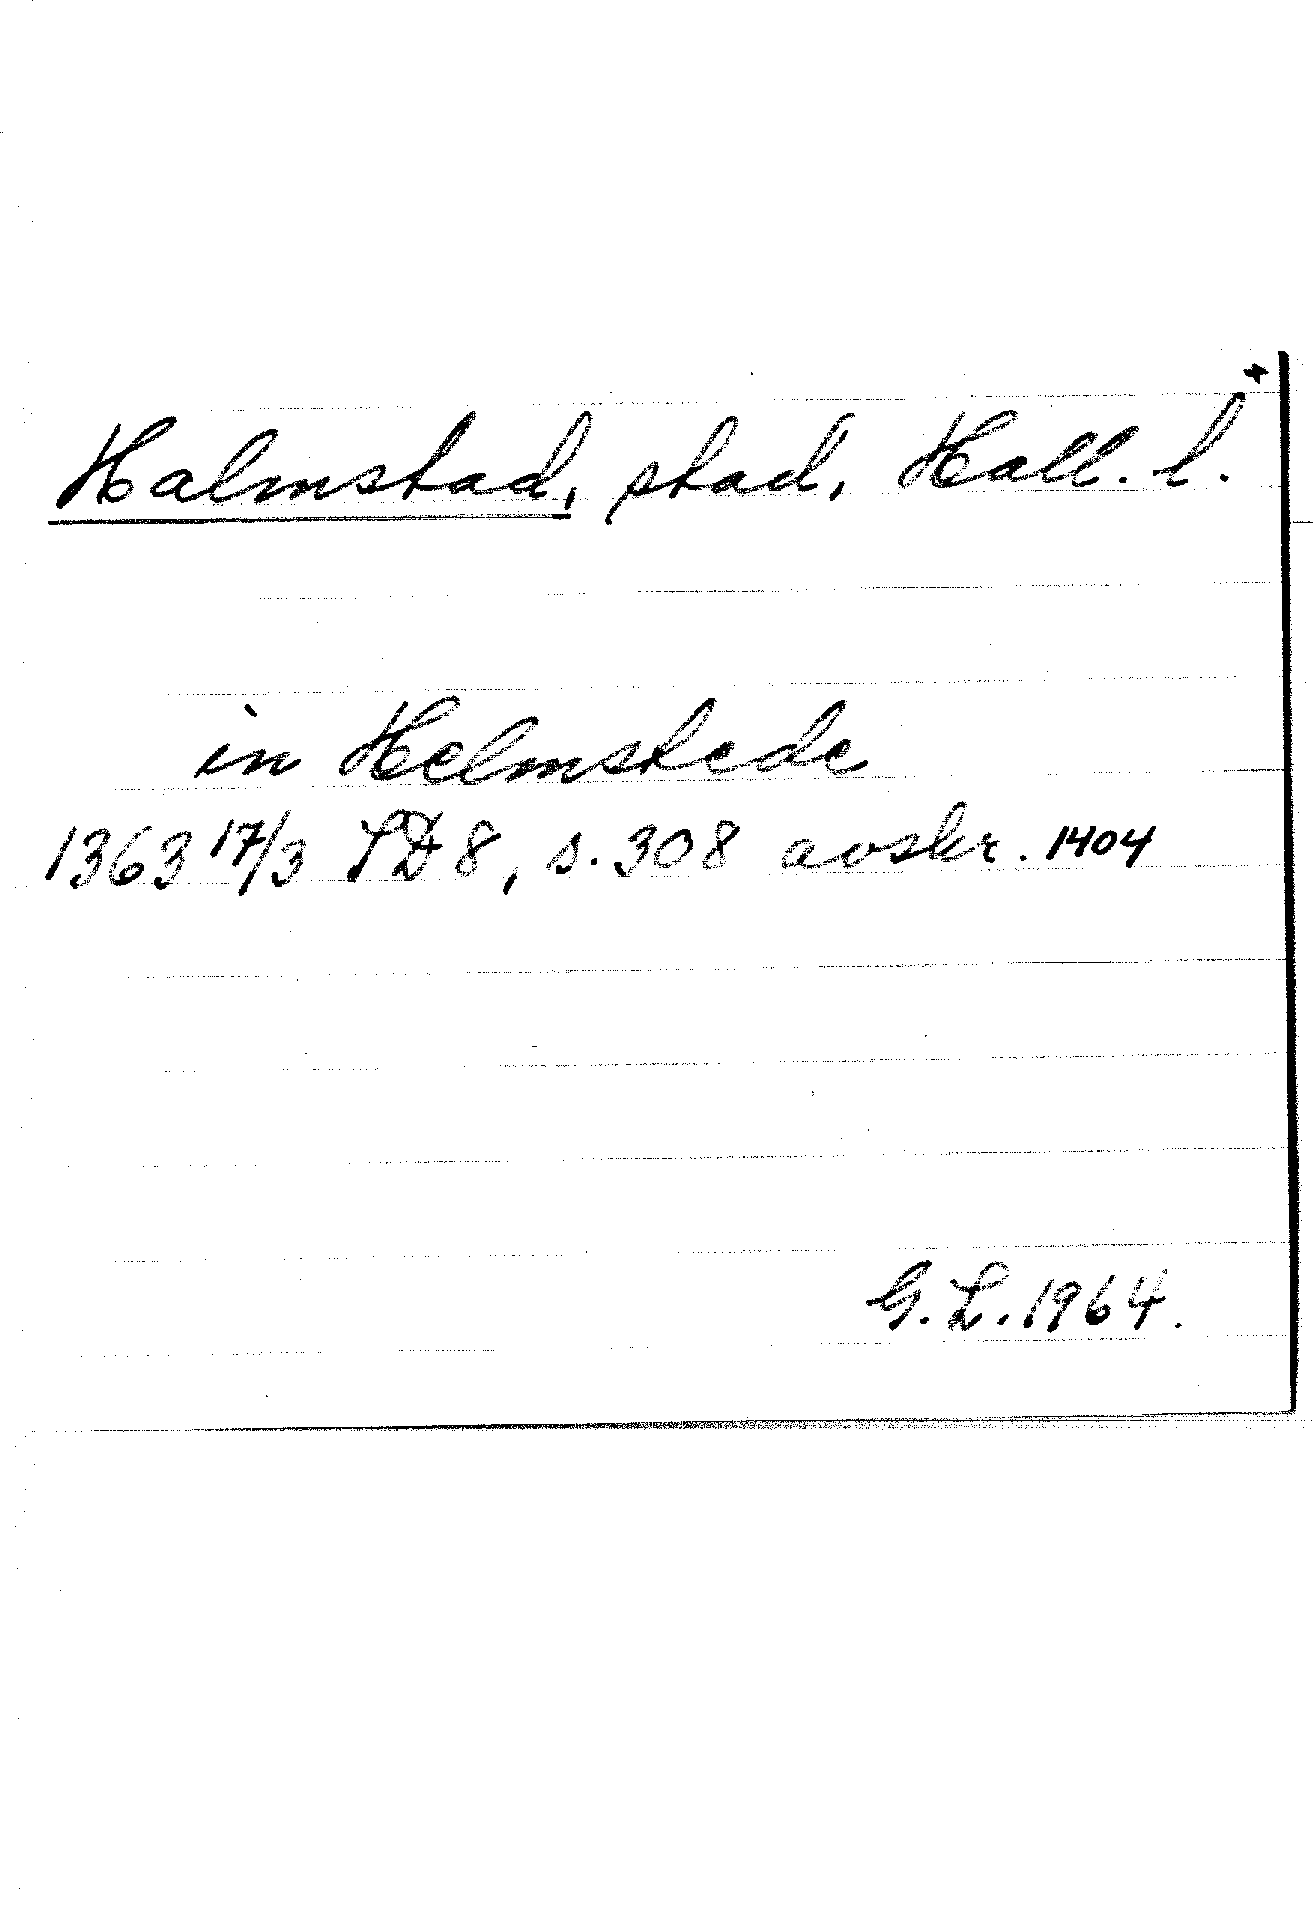 Halmstad, stad, Hall. l.
in Helmstede
1363 17/3 SD 8, s. 308 avskr. 1404
G. L. 1964.